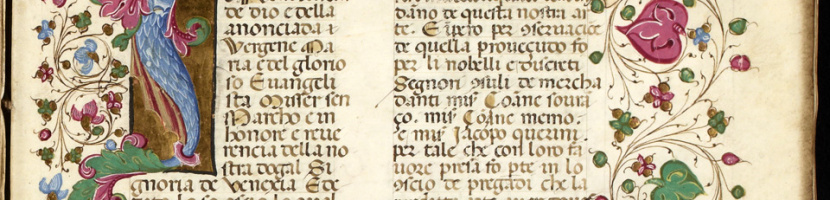 de dio e della
anonciada i
Vergene Ma
ria e del glorio
so Euangeli
sta Misser sen
Marcho e in
honore e reue
rencia della no
stra dogal Si
gnoria de Venexia E de
dano de questa nostra ar
te. E però per conseruacice
de quella prouecudo fo
per li nobelli e discreti
Segnori consuli de mercha
danti mis Coane soura
ço. mis Coane memo.
e mis Jacopo querini.
per tale che con loro fa
uore presa fo pte in lo
conscio de pregadi che la